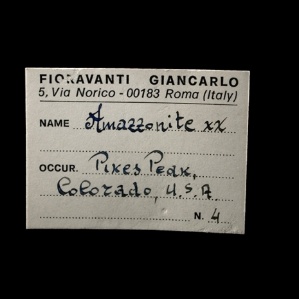 FIORAVANTI GIANCARLO
5, Via Norico - 00183 Roma (Italy)
NAME Amazzonite xx
OCCUR. Pikes Peak,
Colorado, U.S.A.
N. 4